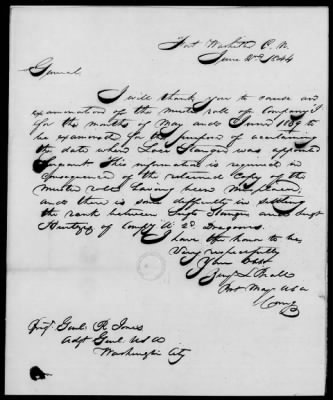 Fort Washita C. N.
June 2nd 1844
General
I will thank you to cause and
examination of the muster roll of Company
for the months of May and June 1839 to
be examined for the purpose of ascertaining
the date when Levi was appointed
Sergeant This information is required in
Consequence of the retained Copy of the
Muster rolls having been misplaced
and there is some difficulty in settling
the rank between Sergt and Sergt
of Compy A. 2d Dragoons.
I have the honor to be
Very respectfully
Your Obt
Benj L Beall
Bvt Maj USA
Comg
Genl R Jones
Adjt Genl USA
Washington City